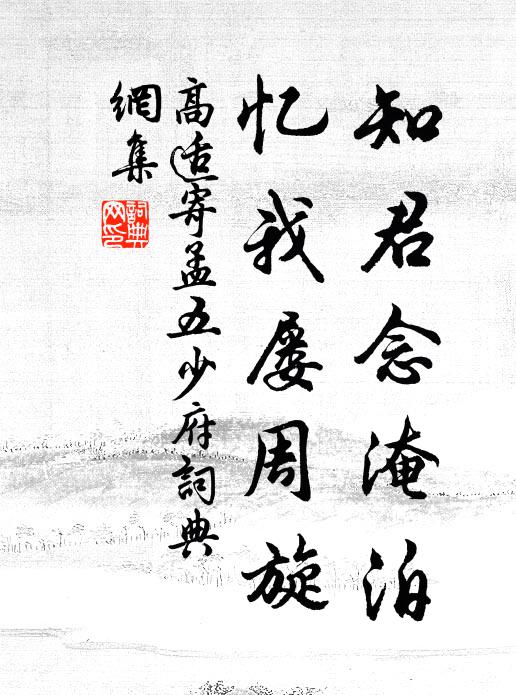 知君念淹泊
忆我屡周旋
高适寄孟五少府詞典
網集
詞典
网印